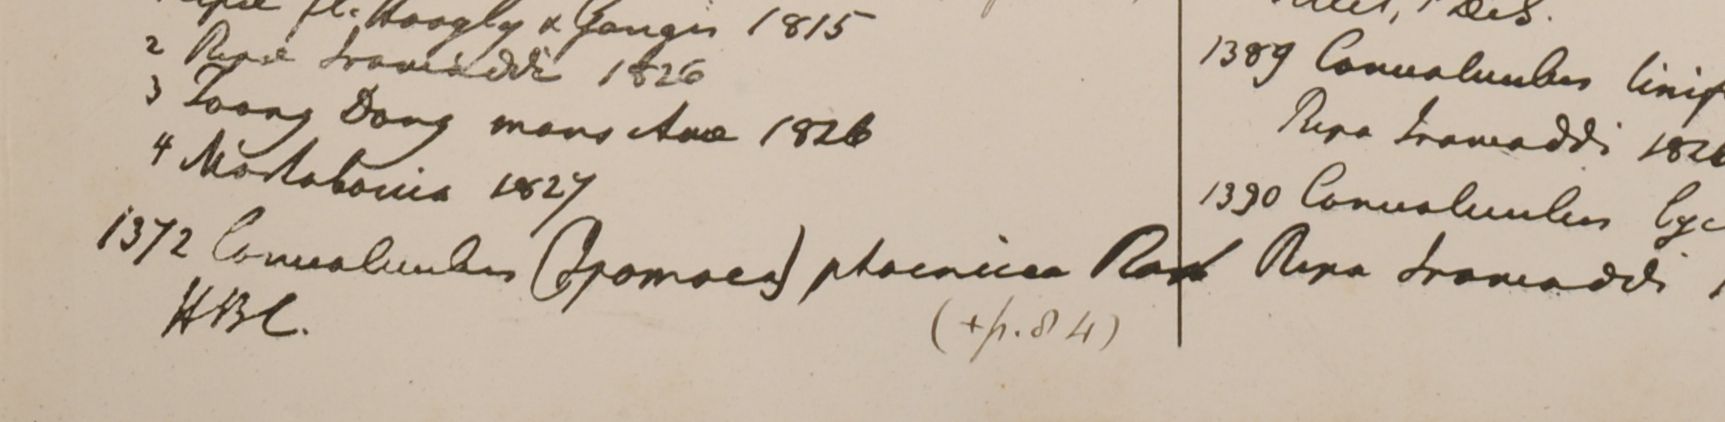 fl. Hoogly & Gangis 1815
2 Ripa Irawaddi 1826
3 Toong Dong mons Ava 1826
4 Martabania 1827
1372 Convolvulus (Ipomoea) phoenicea Roxb
HBC.
(+p. 84)
1389 Convolvulus linif
Ripa Irawaddi 1826
1390 Convolvulus
Ripa Irawaddi